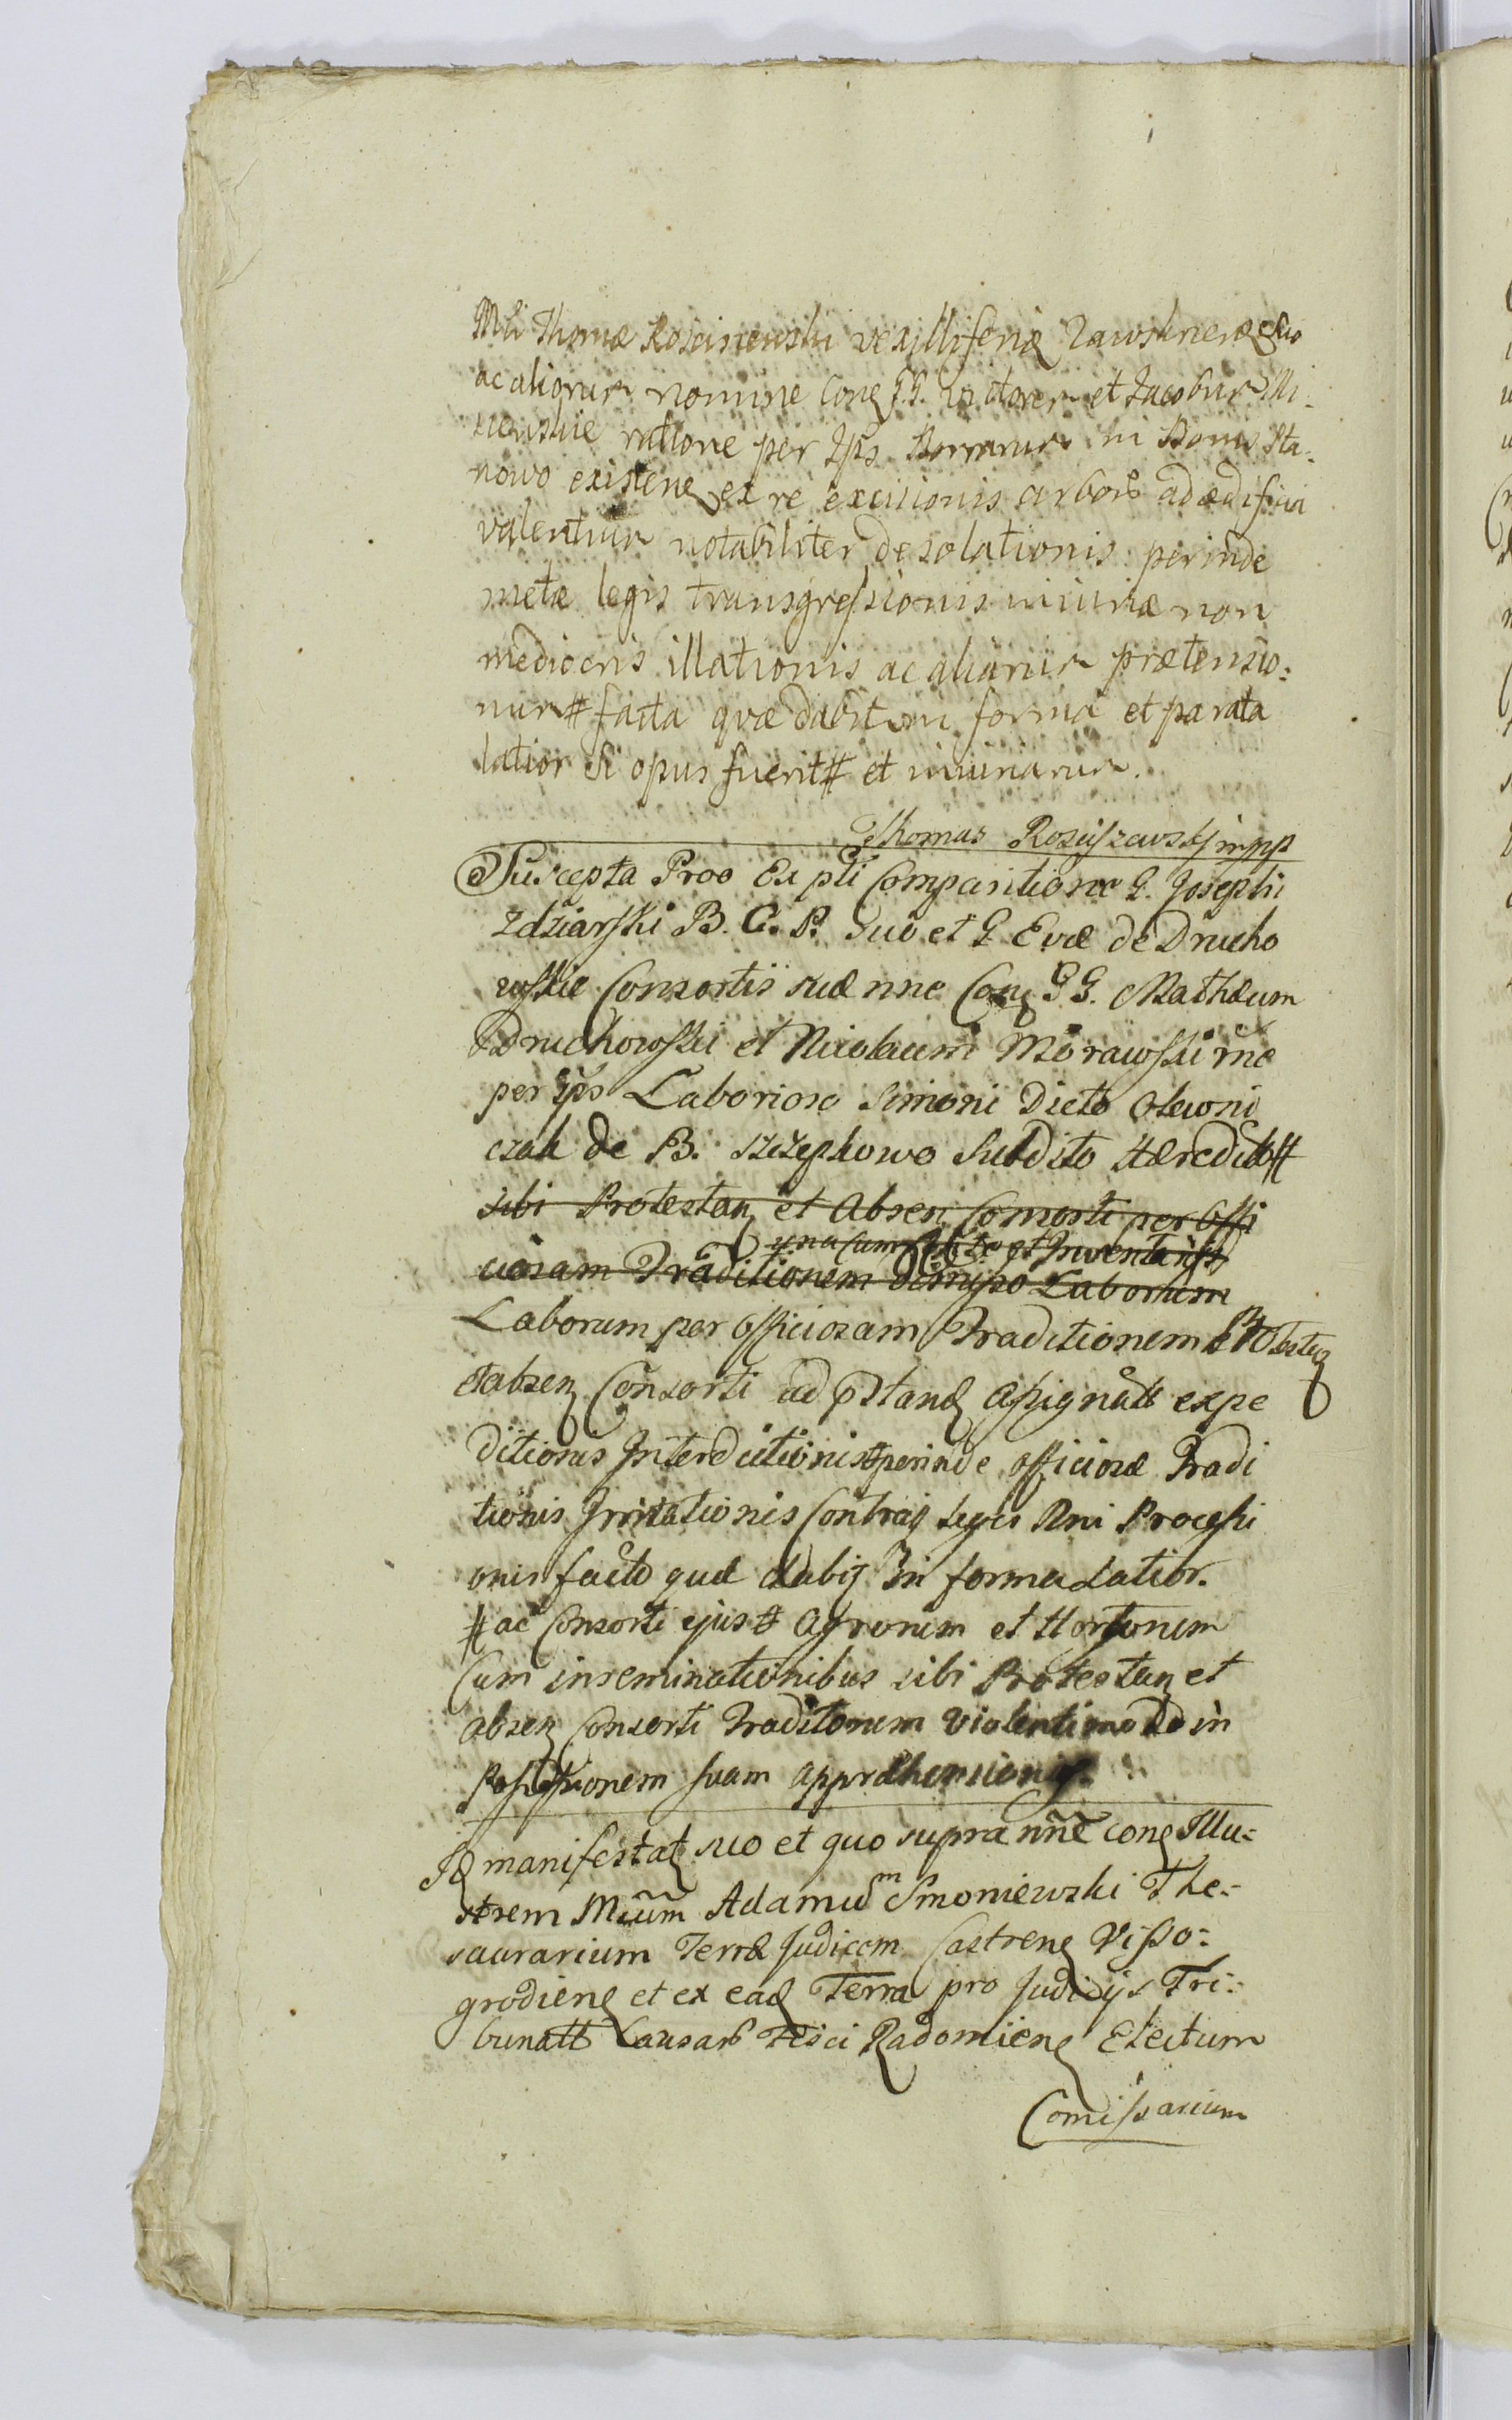 Mci Thomæ Rosciszewski vexilliferi Zawskrenen Suo
ac aliorum nomine Con GG. Victorem et Jacobum Mi-
ratione per Ips Borrarum in Bonis Sta-
nowo existen ex re excisionis arbor ad ædificia
valentium notabiliter desolationis perinde
metæ legis transgressionis iniuriæ non
mediocris illationis ac aliarum prætensio-
num # facta quæ dabitur in forma et parata
latior si opus fuerit # et iniuriarum.
Thomas Rosciszewski mpp
Suscepta Proo Ex pti Comparitione G. Josephi
Zdziarski B. C. P. Suo et G Evæ de Drucho
wskie Consortis suæ nne Con GG. Mathæum
Druchowski et Nicolaum Morawski rne
per Ips Laborioso Simoni Dicto Olewni
czak de B. Szczepkowo Subdito Hæredit #
sibi Protestan et Absen Consorti per Offi
una cum et Inventa
ciosam Traditionem dimisso Laborum
Laborum per Officiosam Traditionem Protestan
et absen Consorti ad pstand assignatt expe
ditionis Interdictionis # perinde officiosæ Tradi
tionis Irritationis Contraij Legis Rni Processi
onis facto quæ dabit In forma Latior.
# ac Consorti ejus # Agrorum et Hortorum
Cum inseminationibus sibi Protestan et
absen Consorti Traditorum violenti modo in
Possessionem suam appræhensionis.
Id manifestat suo et quo supra nne con Illu-
strem Mcum Adamum Smoniewski The-
saurarium Terræ Judicem Castren Visso-
grodien et ex ead Terra pro Judicijs Tri-
bunatt Causar Fisci Radomien Electum
Comissarium